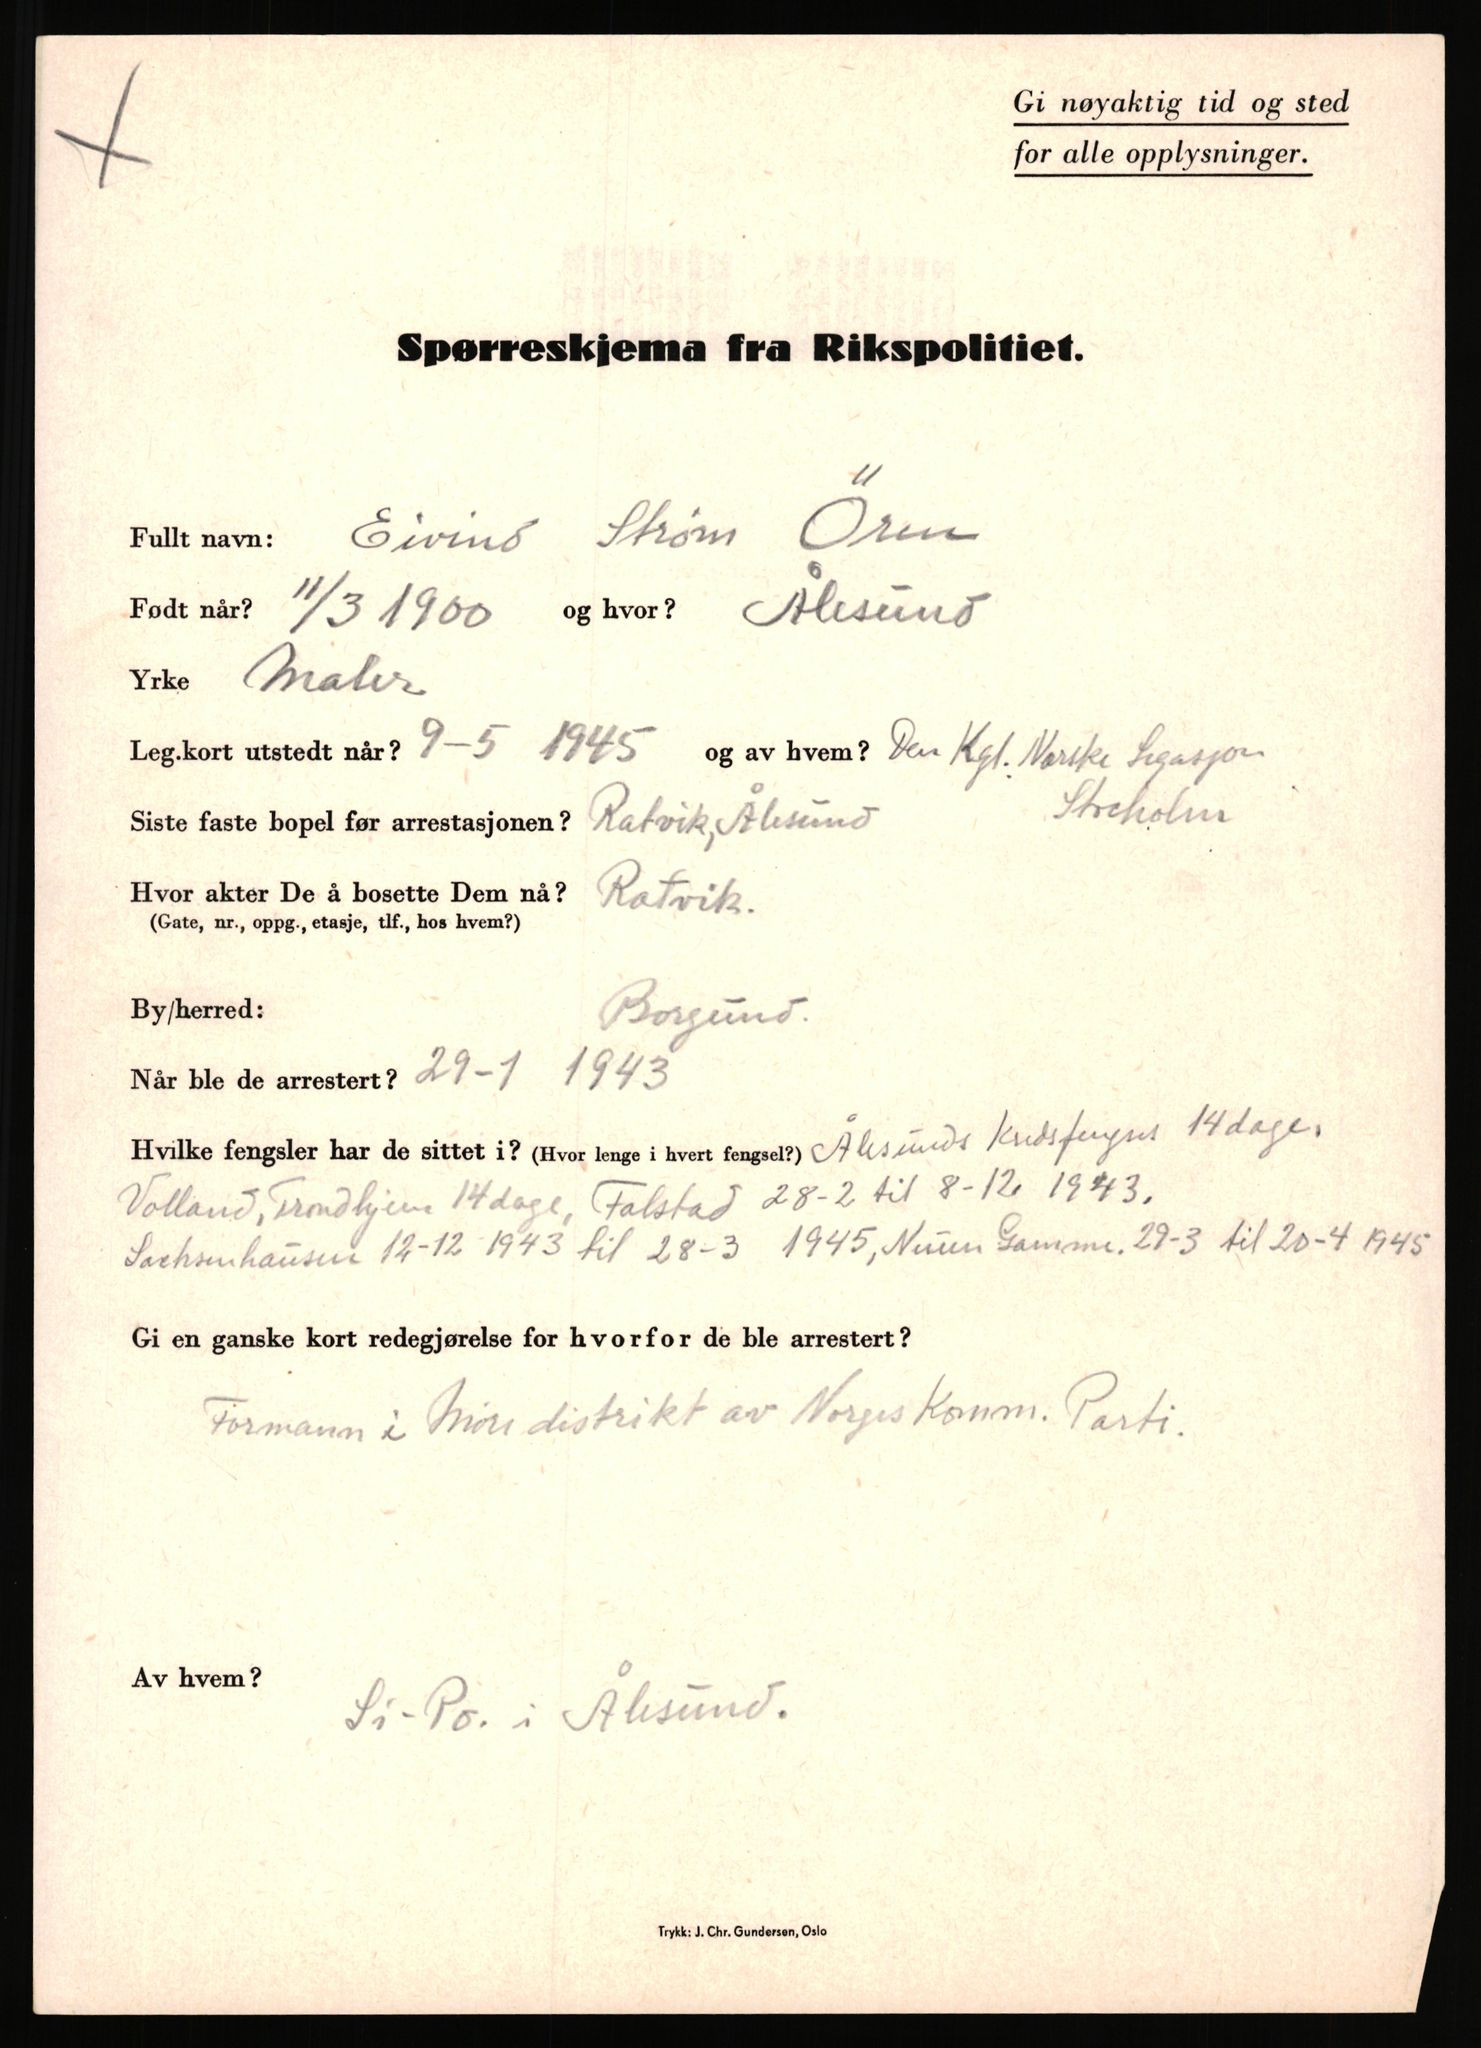 Gi nøyaktig tid og sted
for alle opplysninger.
Spørreskjema fra Rikspolitiet.
Fullt navn: Eivind Strøm Ören
Født når? 11/3 1900 og hvor? Ålesund
Yrke Maler
Leg.kort utstedt når? 9-5 1945 og av hvem? Den Kgl. Norske Legasjon
Stocholm
Siste faste bopel før arrestasjonen? Ratvik, Ålesund
Hvor akter De å bosette Dem nå? Ratvik.
(Gate, nr., oppg., etasje, tlf., hos hvem?)
By/herred: Borgund.
Når ble de arrestert? 29-1 1943
Hvilke fengsler har de sittet i? (Hvor lenge i hvert fengsel?) Ålesunds 14 dage.
Volland, Trondhjem 14 dage, Falstad 28-2 til 8-12 1943.
Sachsenhausen 12-12 1943 til 28-3 1945, Neuen Gamme. 29-3 til 20-4 1945
Gi en ganske kort redegjørelse for hvorfor de ble arrestert?
Formann i Møre distrikt av Norges Komm. Parti.
Av hvem?
Si-Po. i Ålesund.
Trykk: J. Chr. Gundersen, Oslo